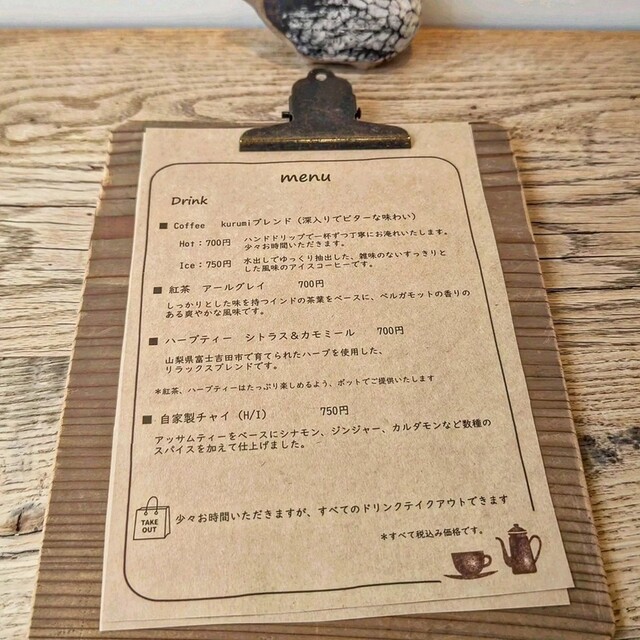 menu
Drink
■ Coffee kurumiブレンド (深入りでビターな味わい)
Hot：700円 ハンドドリップで一杯ずつ丁寧にお淹れいたします。
少々お時間いただきます。
Ice：750円 水出しでゆっくり抽出した、雑味のないすっきりと
した風味のアイスコーヒーです。
■ 紅茶 アールグレイ 700円
しっかりとした味を持つインドの茶葉をベースに、ベルガモットの香りの
ある爽やかな風味です。
■ ハーブティー シトラス＆カモミール 700円
山梨県富士吉田市で育てられたハーブを使用した、
リラックスブレンドです。
＊紅茶、ハーブティーはたっぷり楽しめるよう、ポットでご提供いたします
■ 自家製チャイ (H/I) 750円
アッサムティーをベースにシナモン、ジンジャー、カルダモンなど数種の
スパイスを加えて仕上げました。
TAKE
OUT
少々お時間いただきますが、すべてのドリンクテイクアウトできます
＊すべて税込み価格です。